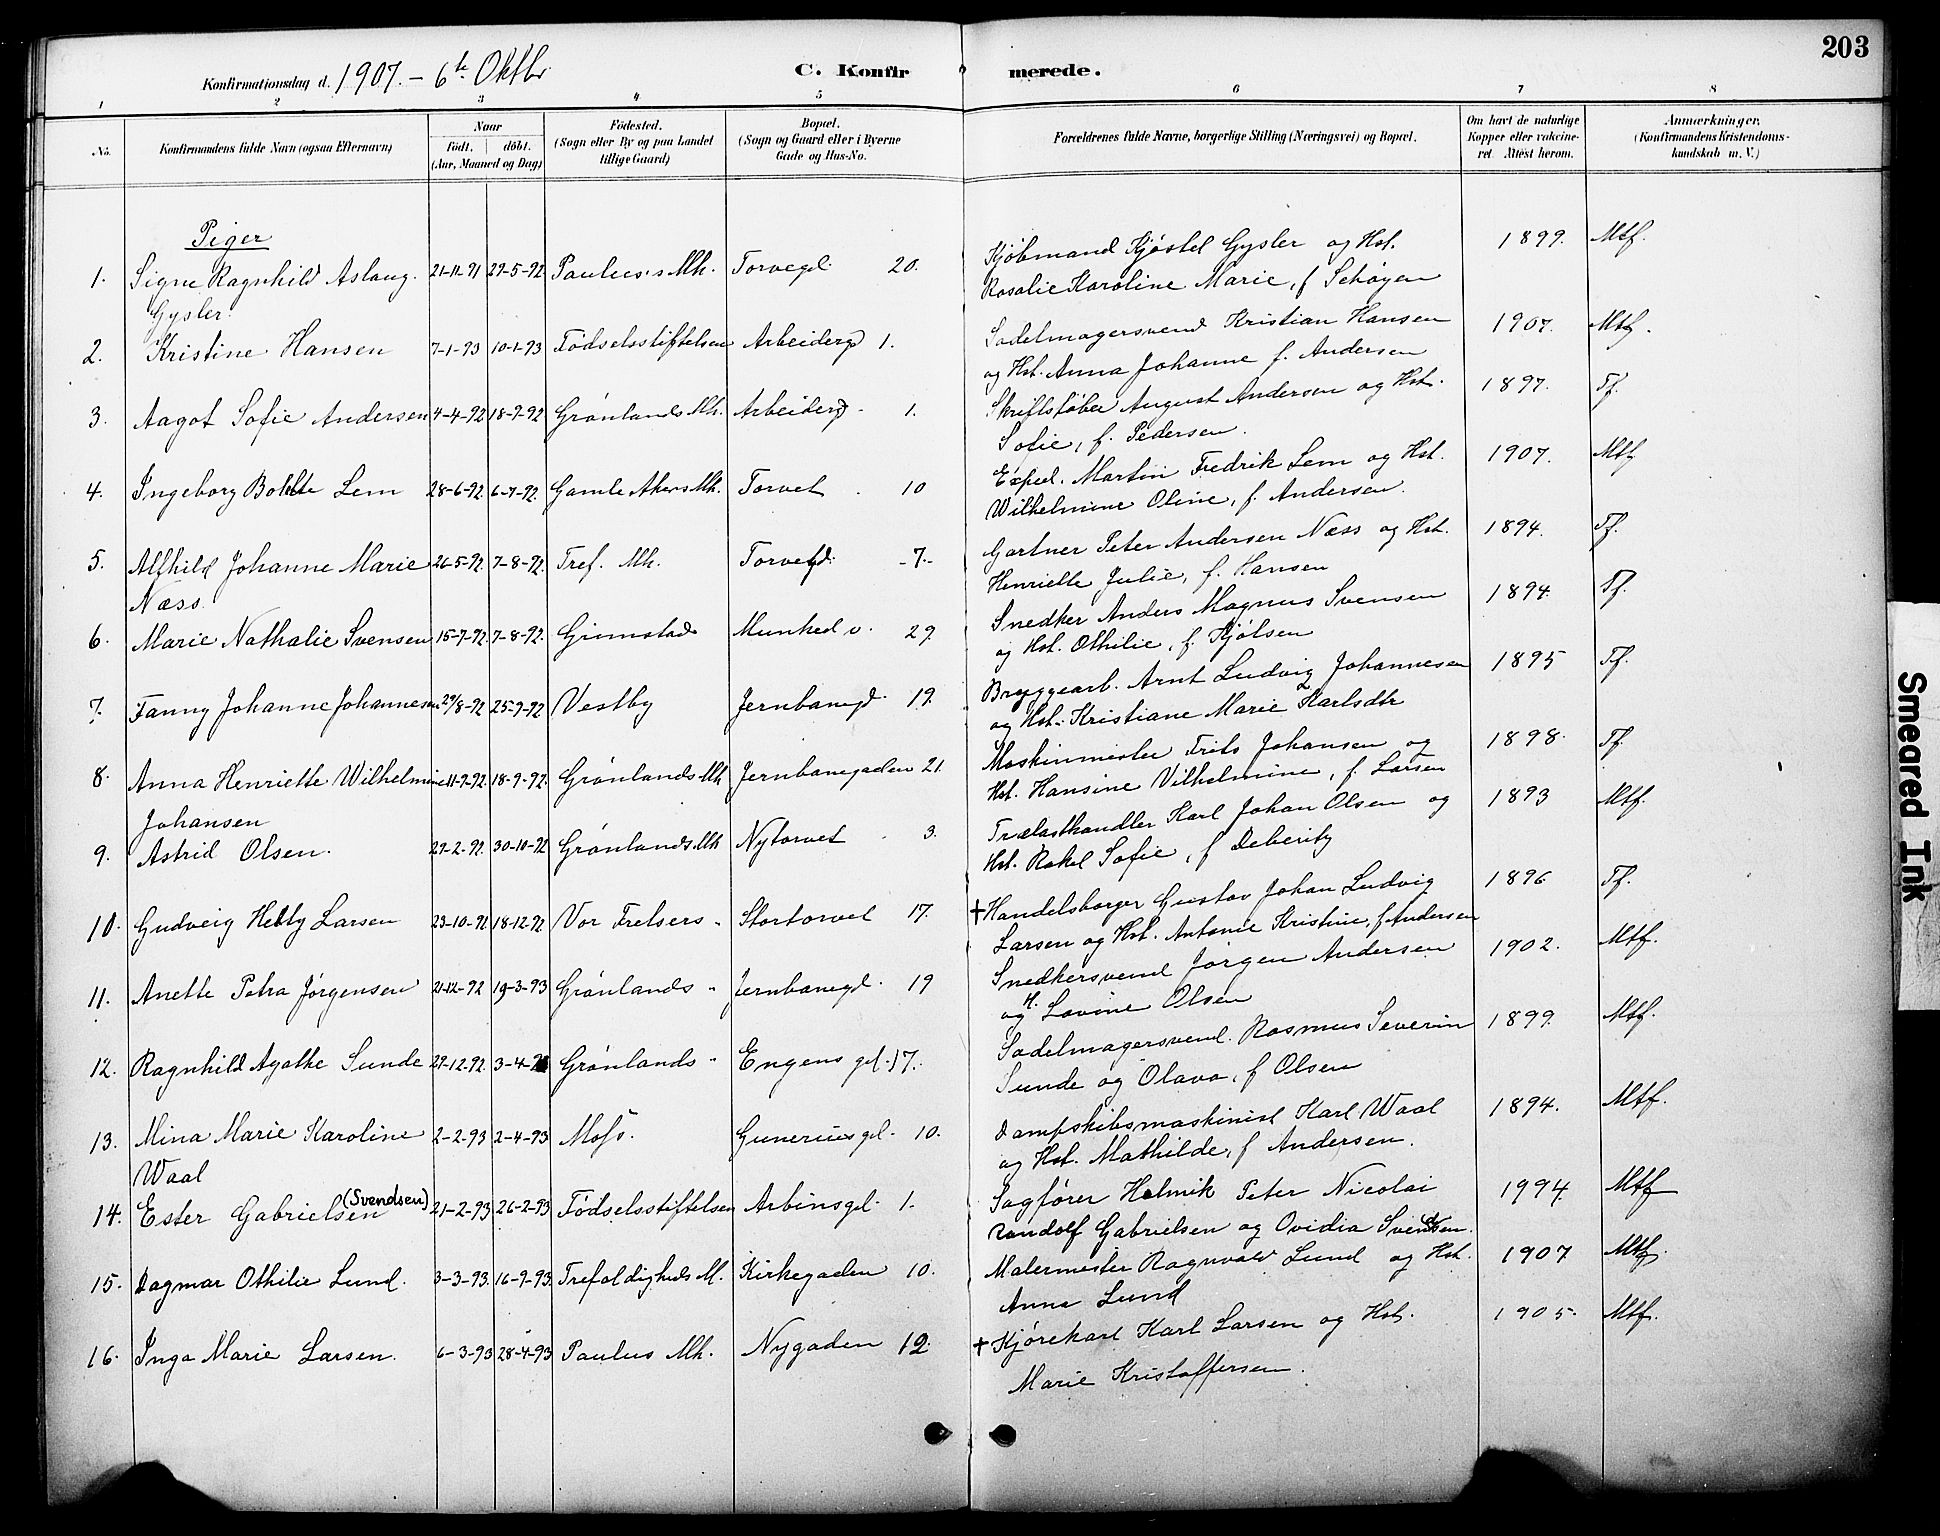 203
Konfirmationsdag d. 1907. - 6te Oktbr
C. Konfirmerede.
1 2 3 4 5 6 7 8
No. Konfirmandens fulde Navn (ogsaa Efternavn) Naar födt. döbt. (Aar, Maaned og Dag) Födested. (Sogn eller By og paa Landet tillige Gaard) Bopæl. (Sogn og Gaard eller i Byerne Gade og Hus-No. Forældrenes fulde Navne, borgerlige Stilling (Næringsvei) og Bopæl. Om havt de naturlige Kopper eller vakcineret. Attest herom. Anmærkninger. (Konfirmandens Kristendomskundskab m. V.)
Piger
1. Signe Ragnhild Aslaug Gysler 21-11-91 29-5-92 Paulus's Mk. Torvegd. 20. Kjöbmand Kjöstel Gysler og Hst. Rosalie Karoline Marie, f Schöyen 1899. Mtf.
2. Kristine Hansen 7-1-93 10-1-93 Födselsstiftelsen Arbeidergd 1. Sadelmagersvend Kristian Hansen og Hst. Anna Johanne f. Andersen 1907. Mtf.
3. Aagot Sofie Andersen 4-4-92 18-9-92 Grönlands Mk. Arbeidergd. 1. Skriftstöber August Andersen og Hst. Sofie, f. Pedersen. 1897. Tf.
4. Ingeborg Bolette Lem 28-6-92 6-7-92. Gamle Akers Mk. Torvet 10 Exped. Martin Fredrik Lem og Hst. Wilhelmine Oline, f. Andersen. 1907. Mtf
5. Alfhild Johanne Marie Næss. 26-5-92 7-8-92. Tref. Mk. Torvegd. -7.- Gartner Peter Andersen Næss og Hst. Henriette Julie, f. Hansen 1894. Tf.
6. Marie Nathalie Svensen 15-7-92 7-8-92. Grimstad Munked v. 29. Snedker Anders Magnus Svensen og Hst. Othilie, f. Kjölsen 1894. Tf.
7. Fanny Johanne Johannesen 29/8-92 25-9-92 Vestby Jernbanegd. 19. Bryggearb. Arnt Ludvig Johannesen og Hst. Kristiane Marie Karlsdtr 1895 Tf.
8. Anna Henriette Wilhelmine Johansen 11-7-92. 18-9-92. Grönlands Mk Jernbanegaden 21. Maskinmester Frits Johansen og Hst. Hansine Vilhelmine, f. Larsen 1898. Tf.
9. Astrid Olsen. 29-2-92. 30-10-92 Grönlands Mk Nytorvet 3. Trælasthandler Karl Johan Olsen og Hst. Rakel Sofie, f 1893 Mtf.
10. Gudveig Hetty Larsen 23-10-92 18-12-92 Vor Frelsers - Stortorvet 17. + Handelsborger Gustav Johan Ludvig Larsen og Hst. Antonie Kristine, f Andersen 1896 Tf.
11. Anette Petra Jörgensen 21-12-92 19-3-93 Grönlands - Jernbanegd. 19 Snedkersvend Jörgen Andersen og H. Lovine Olsen 1902. Mtf.
12. Ragnhild Agathe Sunde 29-12-92. 3-4-93 Grönlands - Engens gd. 17. Sadelmagersvend. Rasmus Severin Sunde og Olava, f Olsen 1899. Mtf.
13. Mina Marie Karoline Waal 2-2-93 2-4-93 Moss. Gunerius gd. 10. Dampskibsmaskinist Karl Waal og Hst. Mathilde, f Andersen. 1894. Mtf.
14. Ester Gabrielsen (Svendsen) 21-2-93 26-2-93 Födselsstiftelsen Arbinsgd. 1. Sagförer Helmik Peter Nicolai Randolf Gabrielsen og Ovidia Svendsen. 1994 Mtf
15. Dagmar Othilie Lund. 3-3-93. 16-9-93. Trefoldigheds M. Kirkegaden 10. Malermester Ragnvald Lund og Hst. Anna Lund 1907 Mtf.
16. Inga Marie Larsen. 6-3-93 28-4-93 Paulus Mk. Nygaden 12. + Kjörekarl Karl Larsen og Hst. Marie Kristoffersen. 1905. Mtf.
Smeared Ink